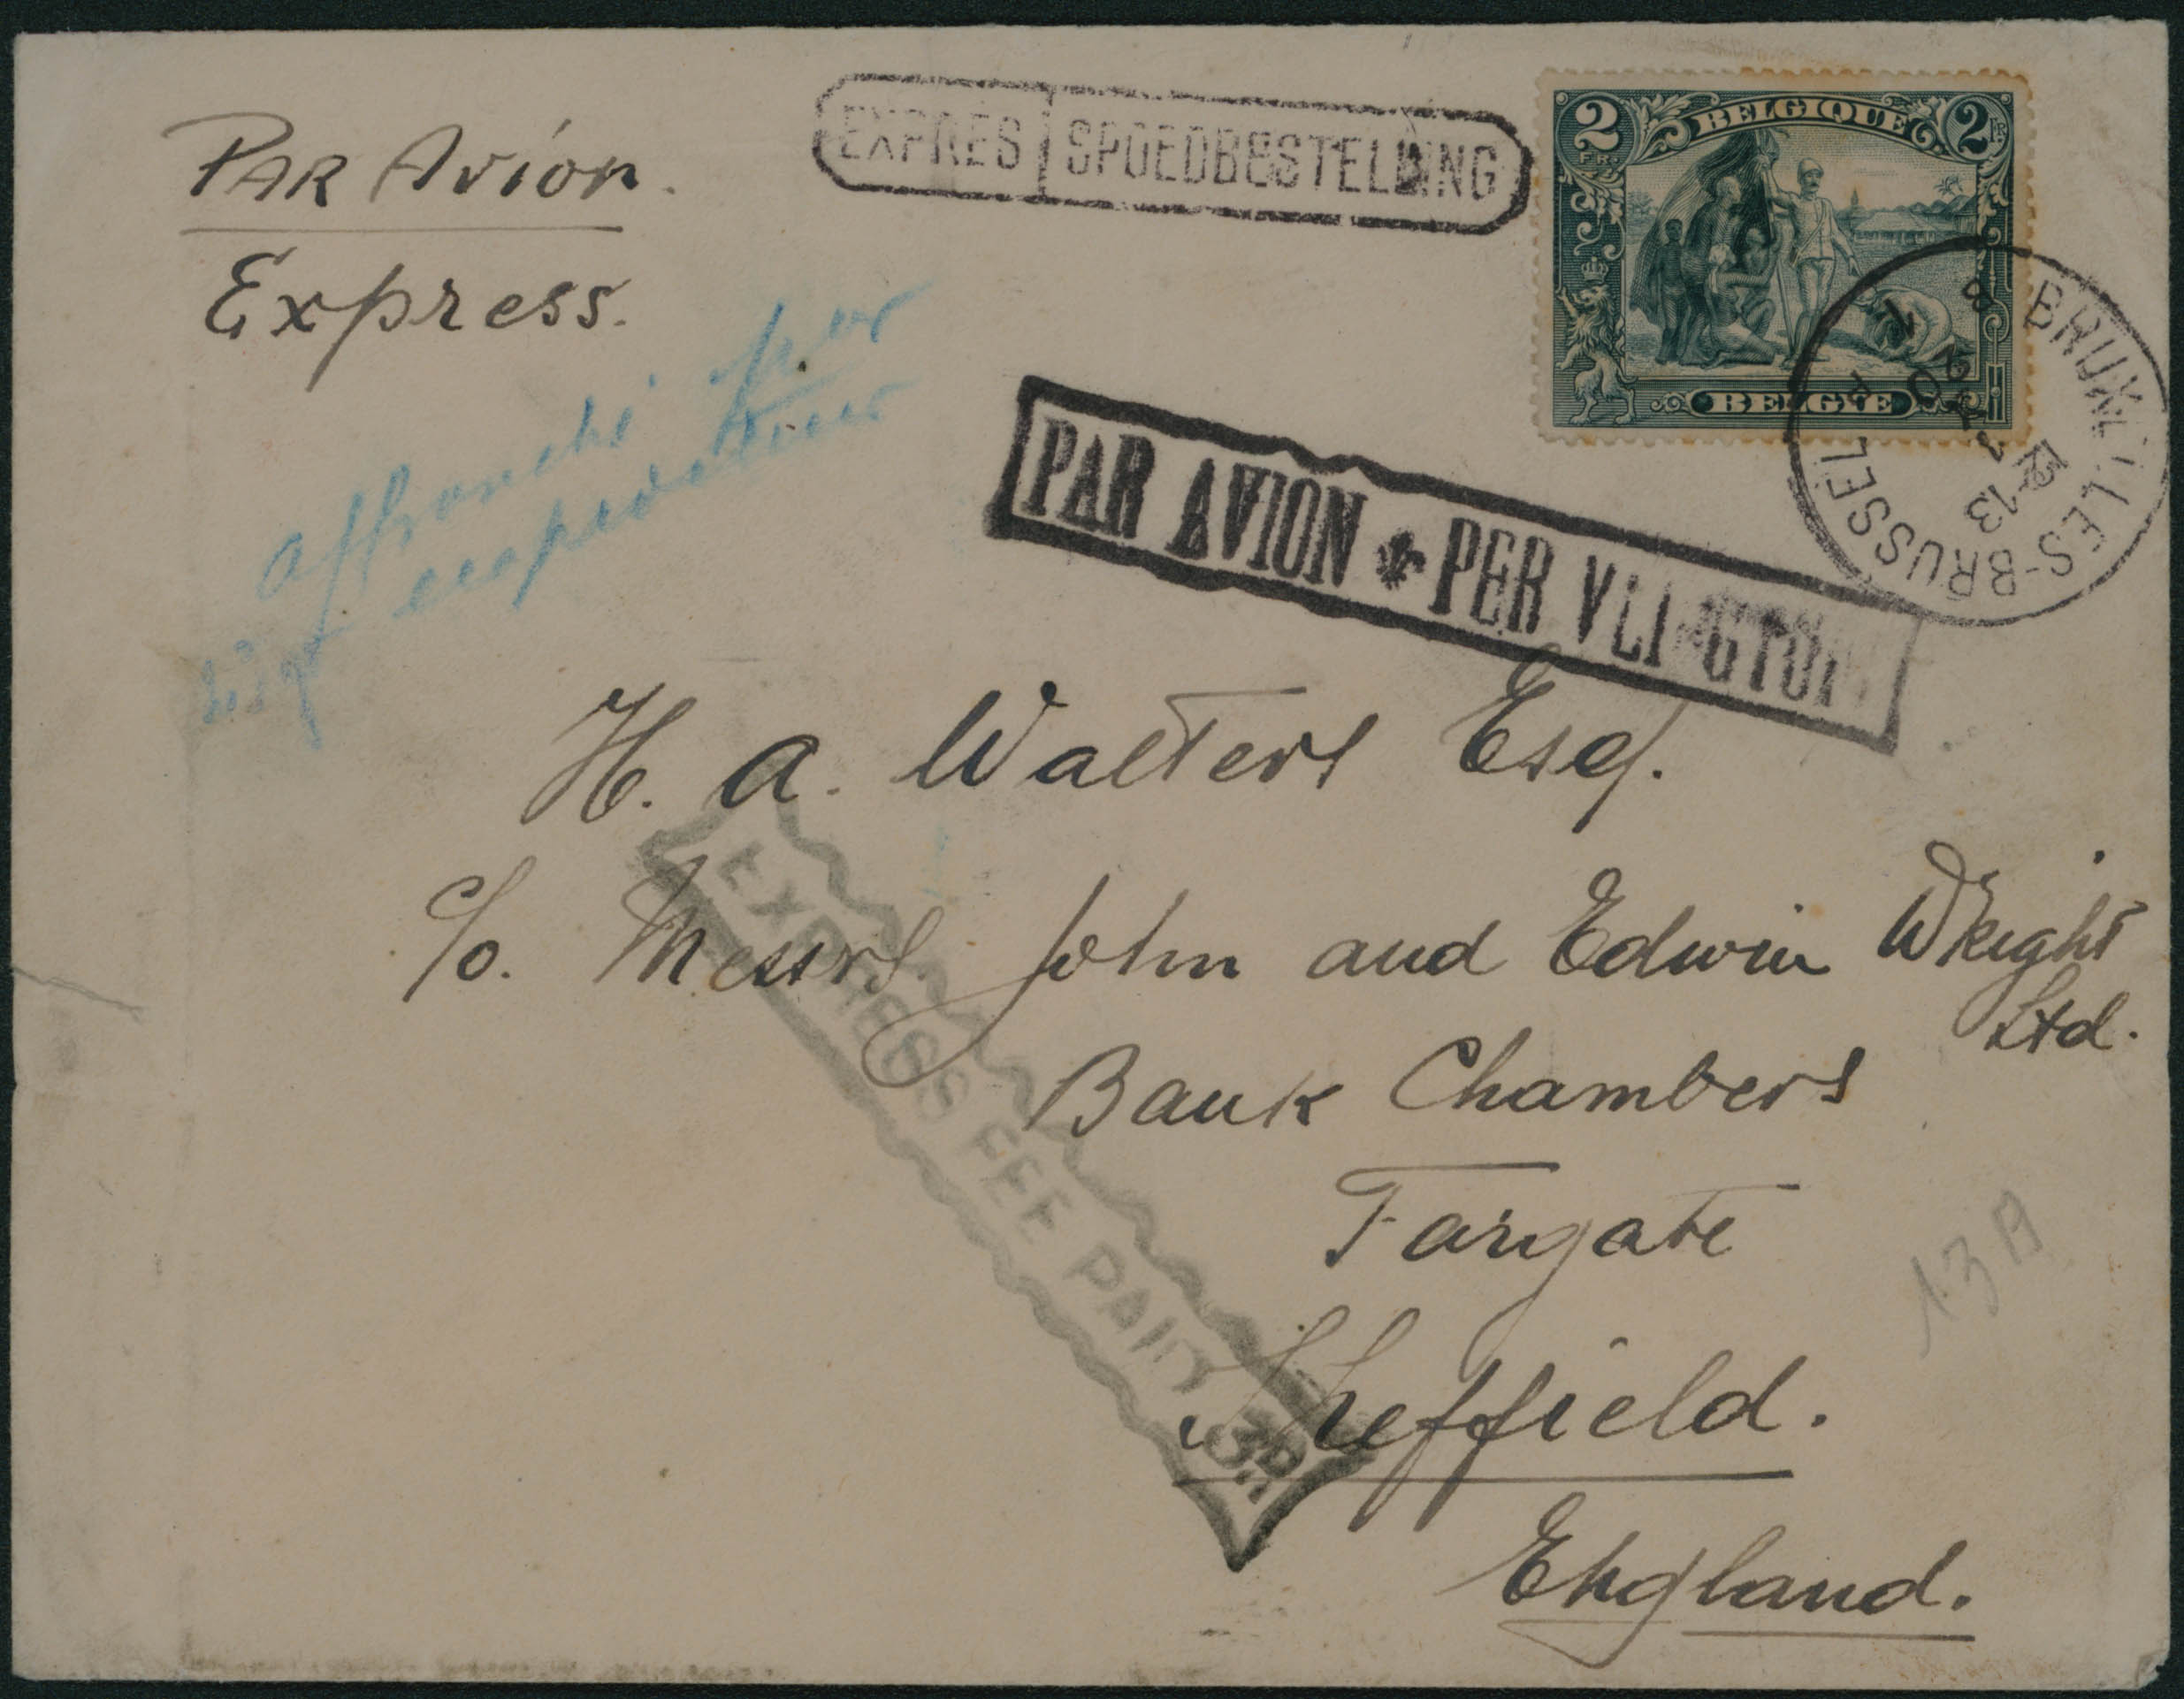 PAR Avion.
Express.
EXPRÈS | SPOEDBESTELLING
2 FR. BELGIQUE 2 FR.
BELGIE
BRUXELLES-BRUSSEL
affranchi par
PAR AVION * PER VLIEGTUIG
H. A. Walters Esq.
c/o. Messrs. John and Edwin Wright
Ltd.
Bank Chambers
Fargate
Sheffield.
England.
EXPRESS FEE PAID 3D.
13 A